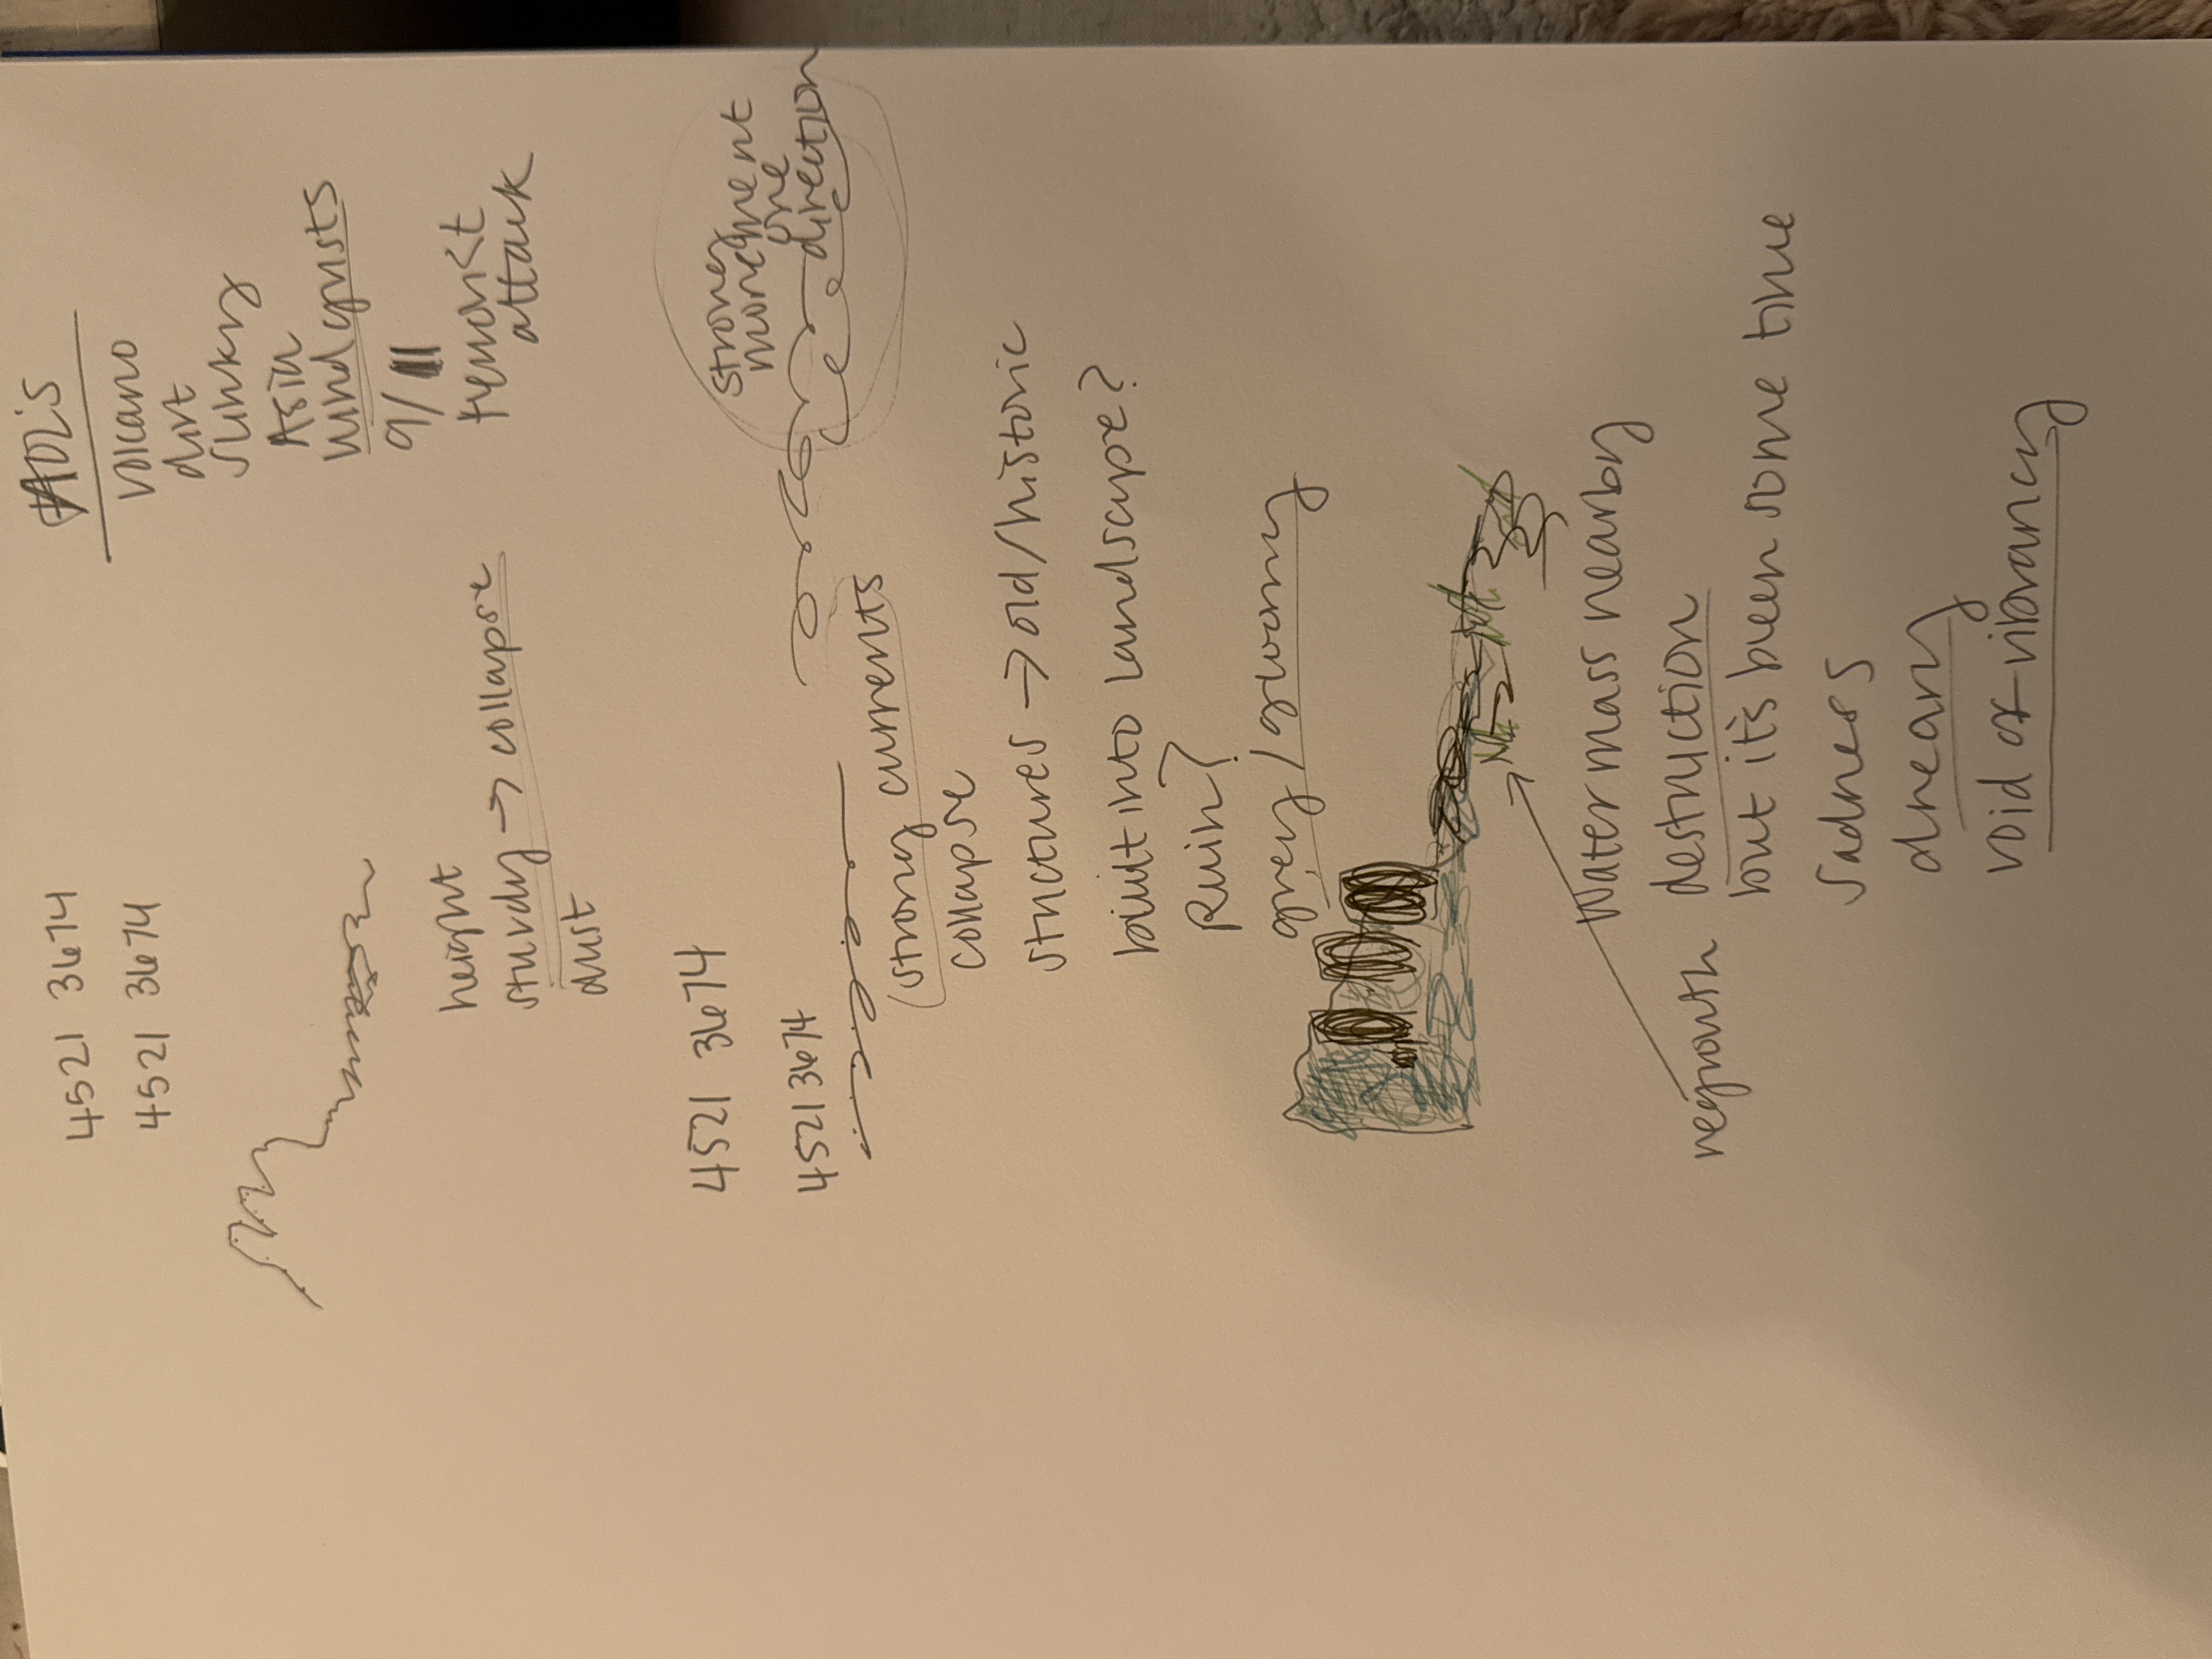 4521 3674
4521 3674
AOL's
volcano
dirt
slinky
Asia
wind gusts
9/11
terrorist
attack
height
sturdy → collapse
dust
4521 3674
4521 3674
strong
movement
one
direction
(strong currents
collapse
structures → old/historic
built into landscape?
Ruin?
grey/stormy
regrowth
Water mass nearby
destruction
but it's been some time
sadness
dreary
void of vibrancy